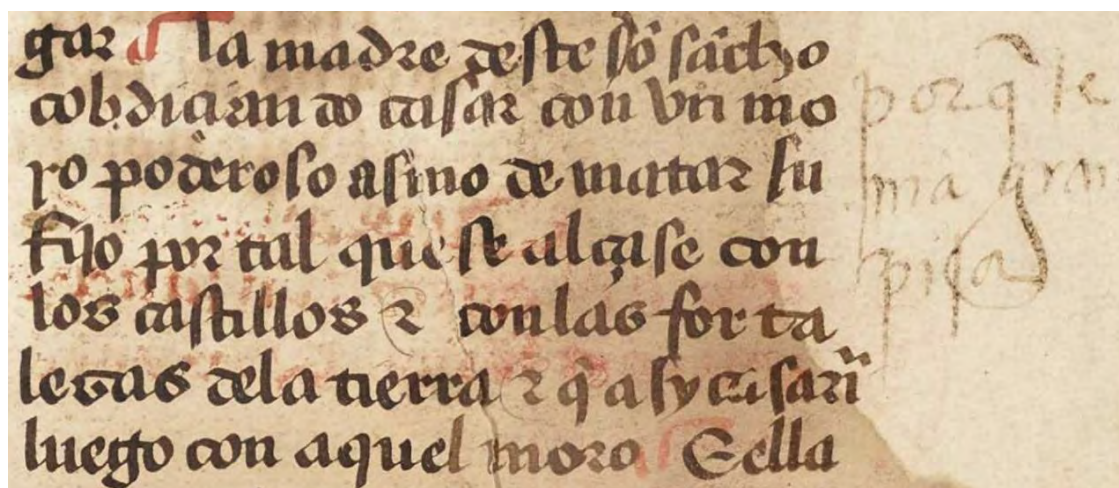 gar la madre deste sõ sãcho
cobdiçian do casar con vn mo
ro poderoso asmo de matar su
fijo por tal que se alçase con
los castillos ⁊ con las forta
lezas dela tierra ⁊ q̃ asy casarĩ
luego con aquel moro Eella
porq̃ te